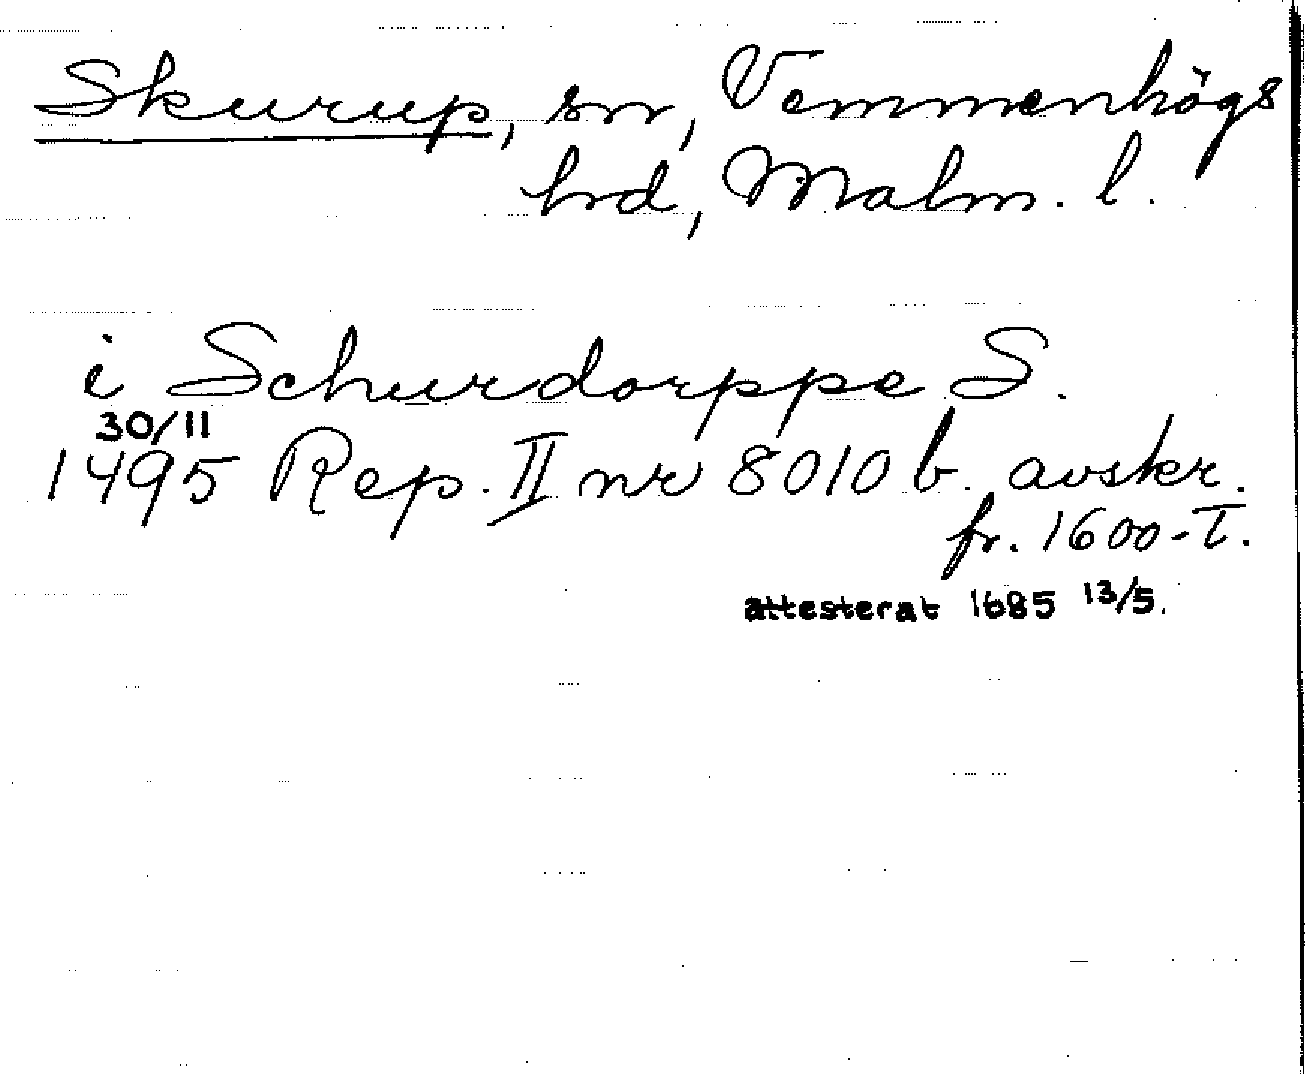 Skurup, sn, Vemmenhögs
hd, Malm. l.
i Schurdorppe S.
30/11
1495 Rep. II nr 8010 b. avskr.
fr. 1600-T.
attesterat 1685 13/5.